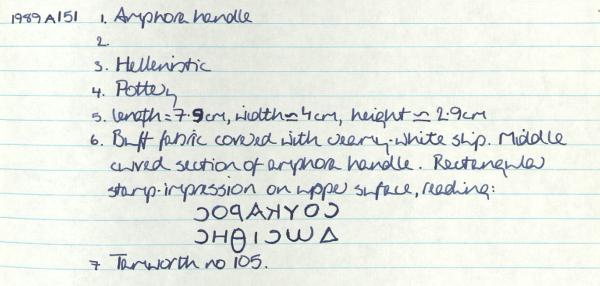 1989A151 1. Amphora handle
2.
3. Hellenistic
4. Pottery
5. length = 7.9cm, width ≃ 4cm, height ≃ 2.9cm
6. Buff fabric covered with creamy-white slip. Middle
curved section of amphora handle. Rectangular
stamp-impression on upper surface, reading:
ƆOꟼAꓘYOƆ
ƆHθIƆωΔ
7 Tamworth no 105.